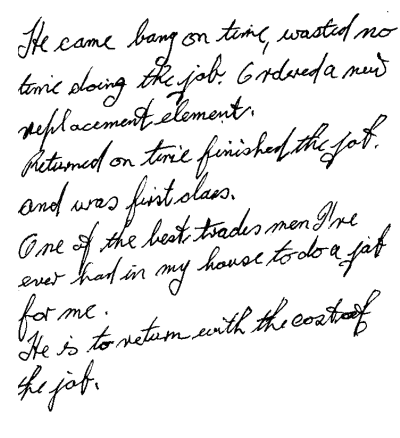 He came bang on time, wasted no
time doing the job. Ordered a new
replacement element.
Returned on time finished the job.
and was first class.
One of the best trades men I've
ever had in my house to do a job
for me.
He is to return with the cost of
the job.